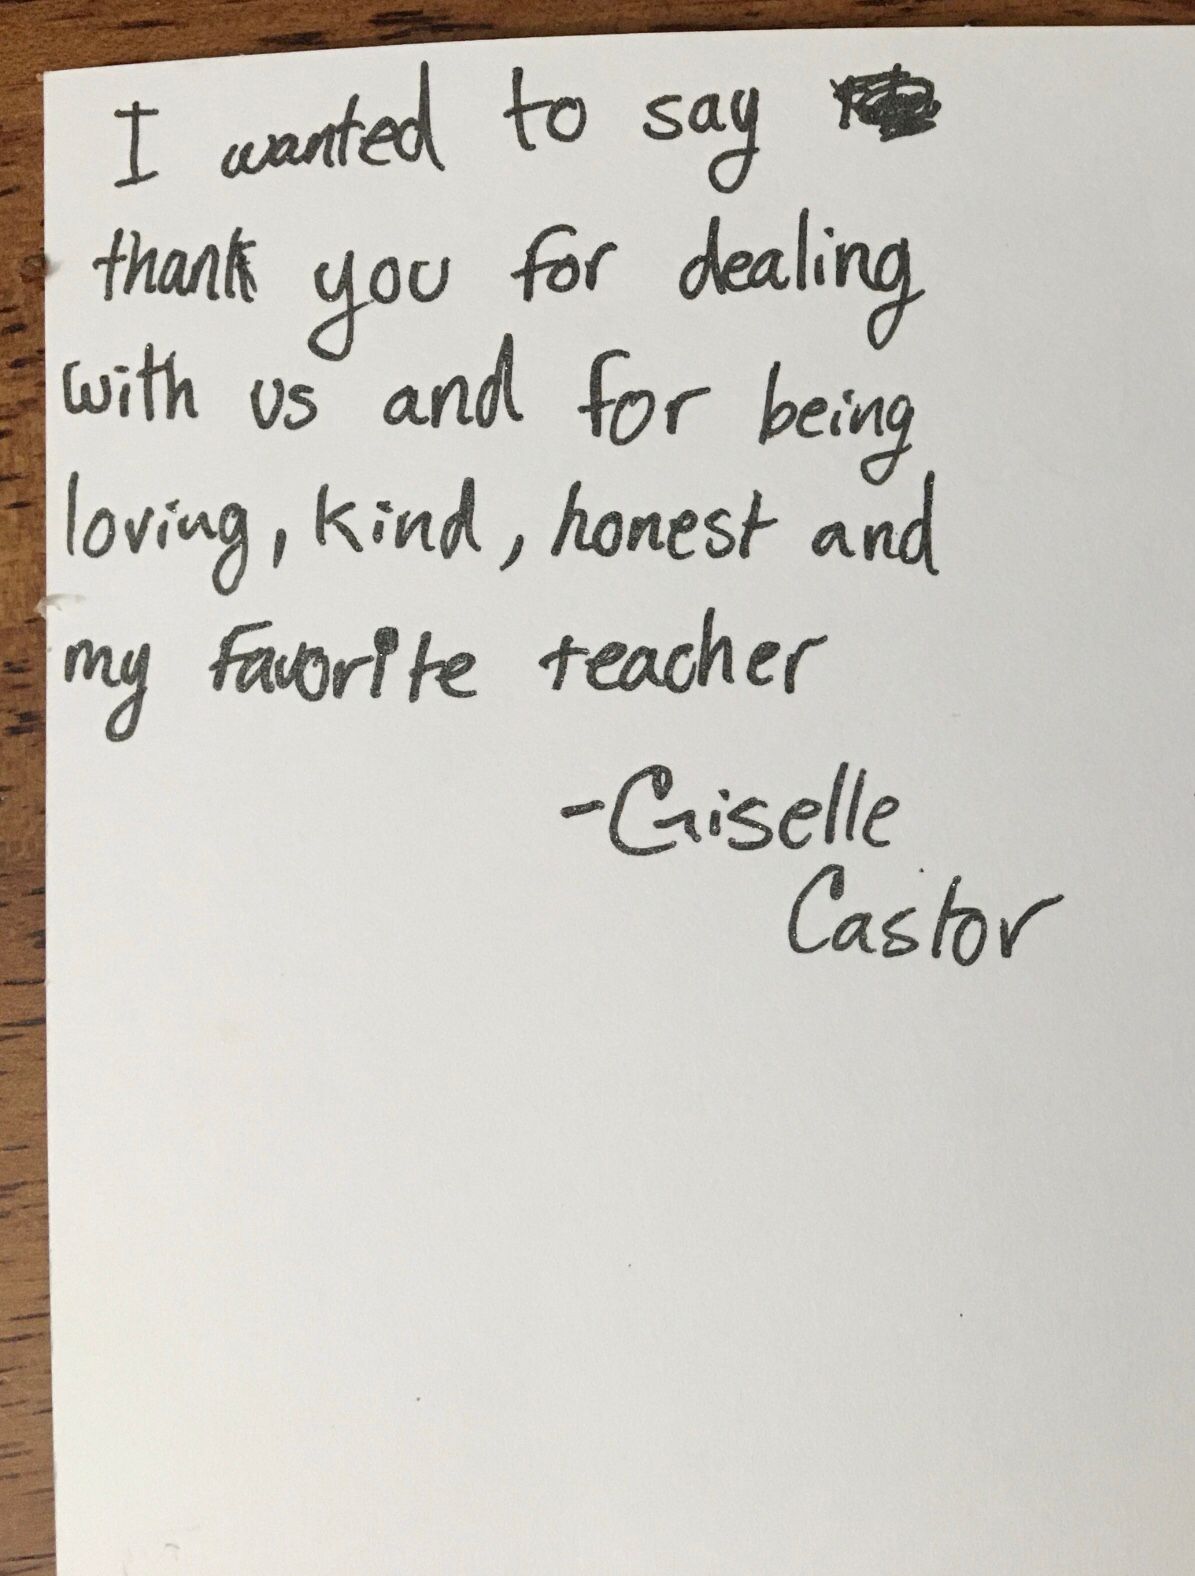 I wanted to say
thank you for dealing
with us and for being
loving, kind, honest and
my favorite teacher
-Giselle
Castor